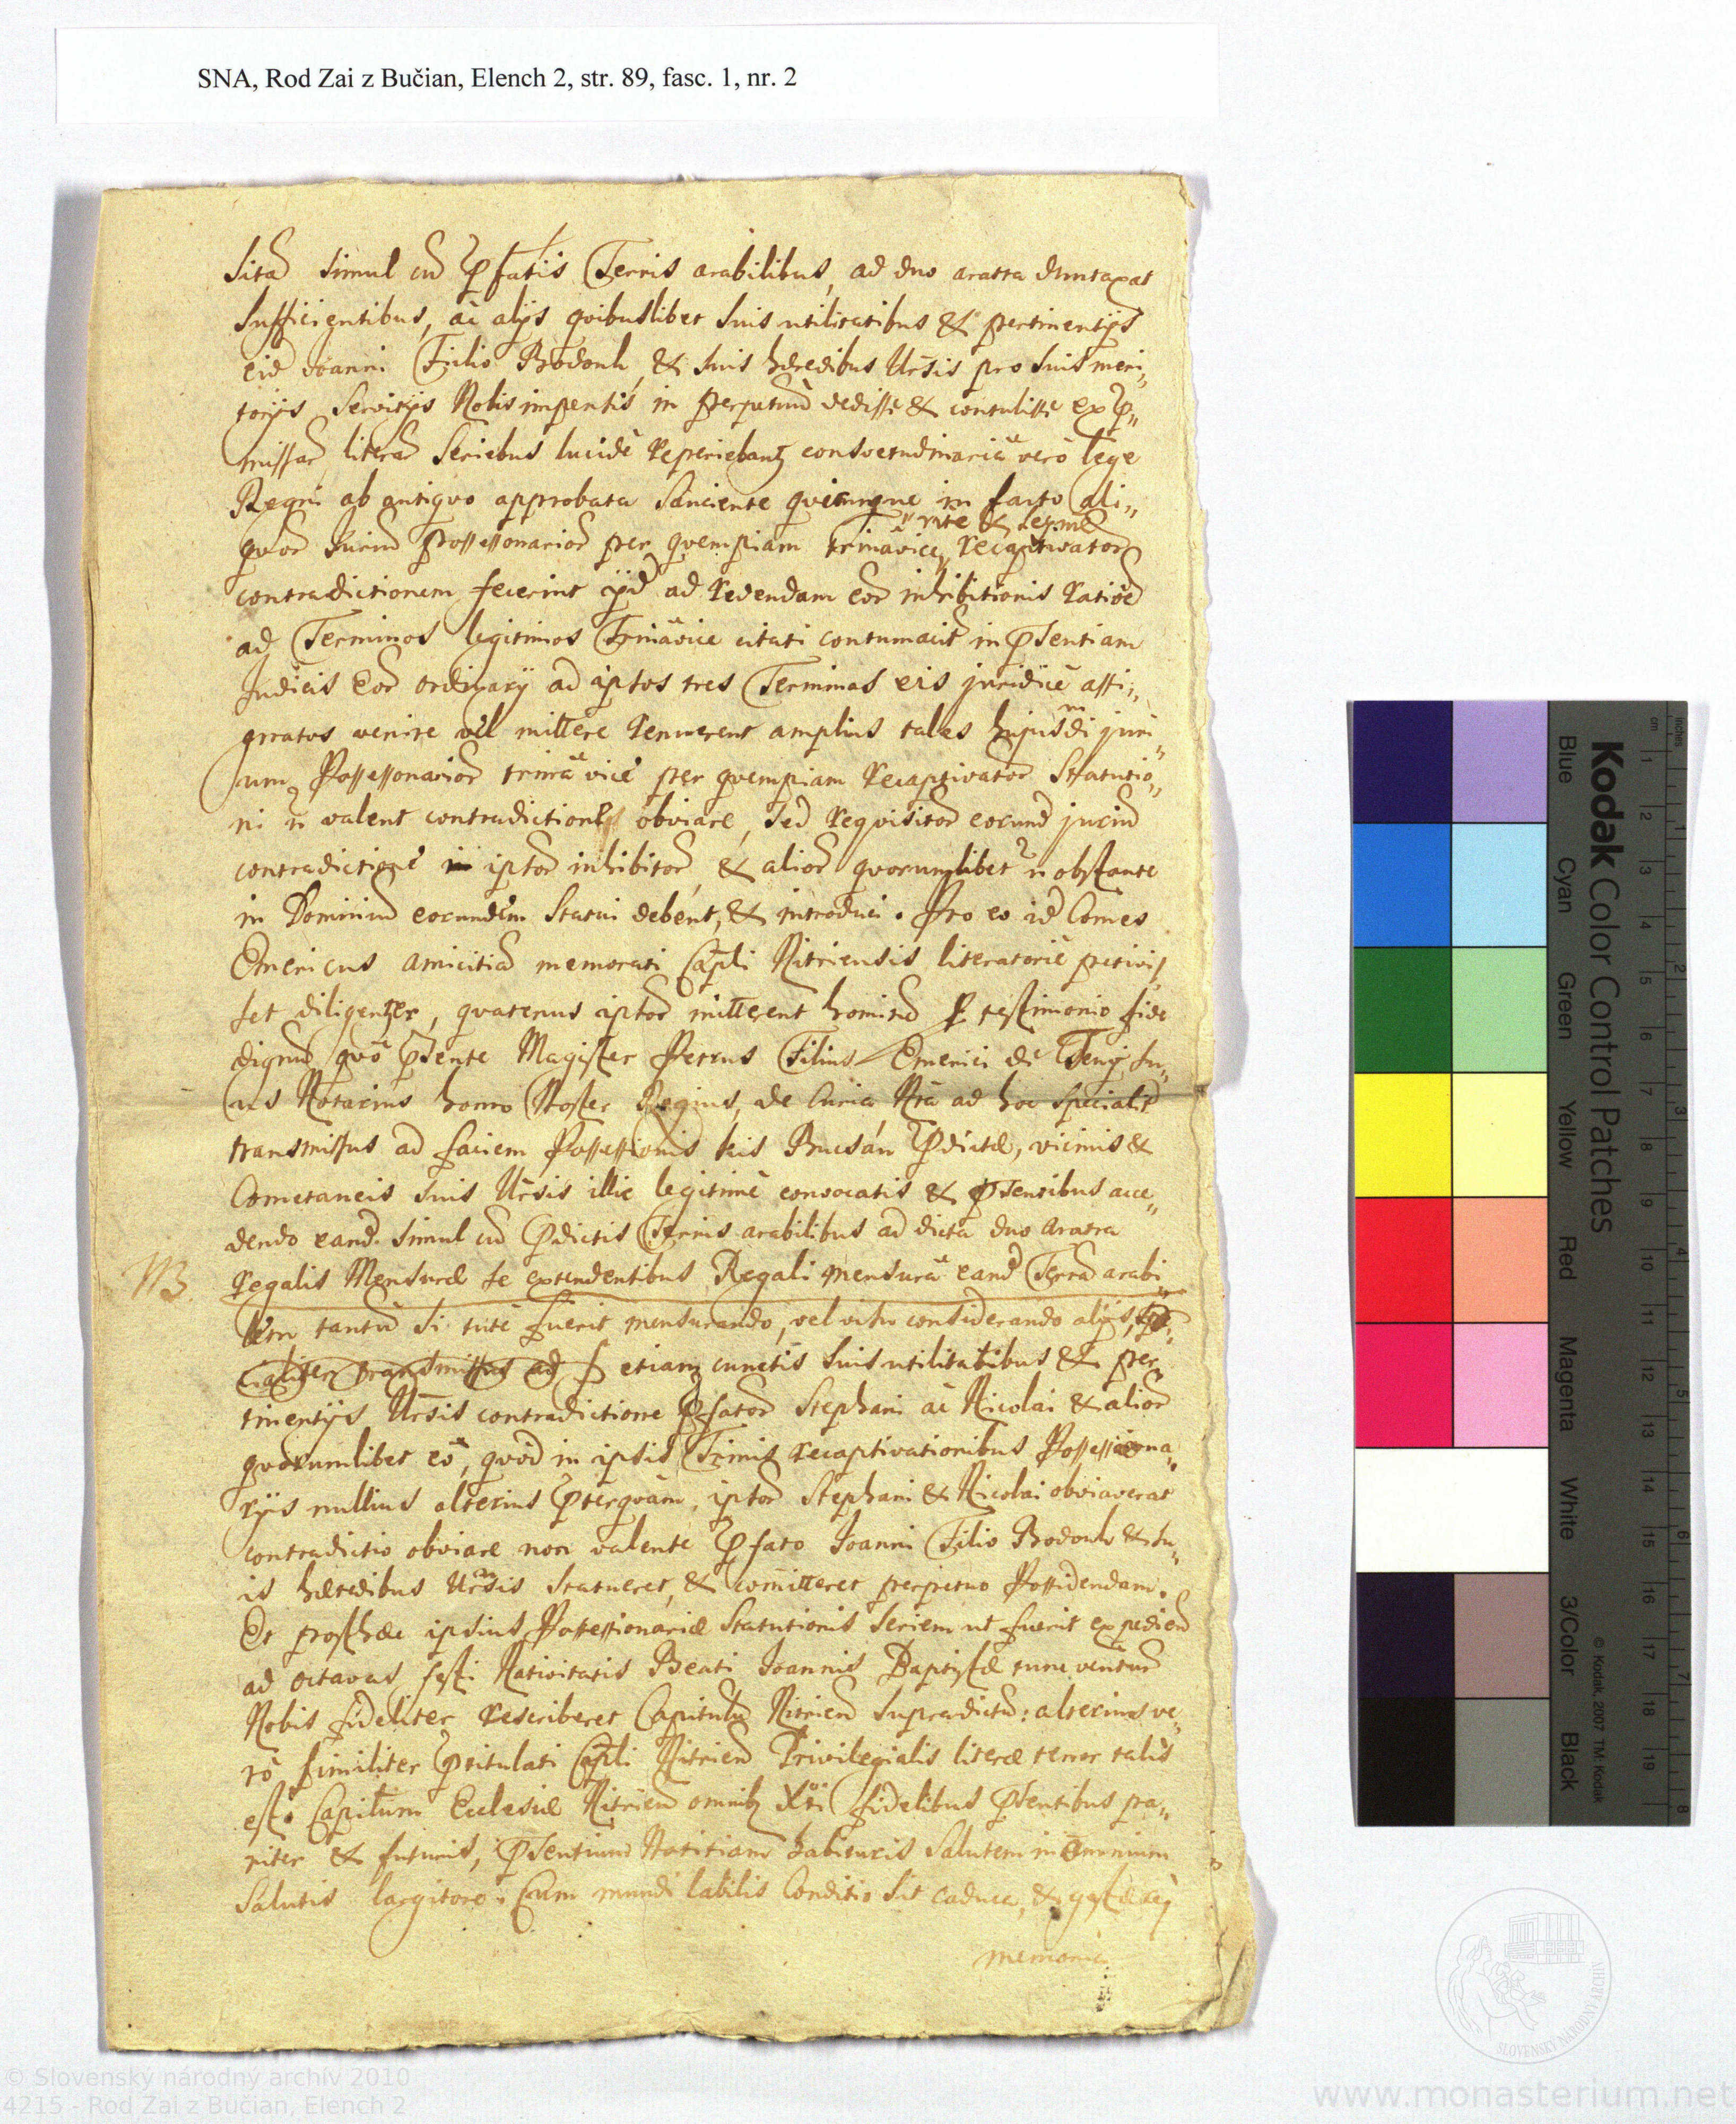 SNA, Rod Zai z Bučian, Elench 2, str. 89, fasc. 1, nr. 2
sitā simul cū p̄fatis Terris arabilibus, ad duo aratra dumtaxat
sufficientibus, ac alÿs quibuslibet suis utilitatibus & pertinentÿs
eid Joanni Filio Bodomh, & suis hæredibus Ūrsis pro suis meri„
torÿs servitÿs Nobis impensis in perpetuū dedisse & contulisse ex p̄„
missar literar seriebus lucide reperiebant consvetudinariā vero lege
Regni ab antiquo approbata sanciente quicunque in facto ali„
quor Juriū Possessionarior per quempiam trinavice, rite & legitime recaptivator
contradictionem fecerint ÿd ad redendam eor inhibitionis ratioē
ad Terminos legitimos Trinavice citati contumacit in p̄sentiam
Judicis Eor ordinarÿ ad iptos tres Terminos eis juridice assi„
gnatos venire vel mittere renuerent amplius tales hujusmdi juri„
um Possessionarior trinavice per quempiam recaptivator statutio„
ni n̄ valent contradictione obviare, sed requisitor eorund juriū
contradictione iptor inhibitor, & alior quorumlibet n̄ obstante
in Dominiū eorundem statui debent, & introduci. Pro eo id Comes
Emericus amicitiā memorati Capli Nitriensis literatorie petivis„
set diligenter, quatenus iptor mitterent hominē p testimonio fide
dignū quo p̄sente Magister Petrus Filius Emerici de Teny su„
us Notarius homo Noster Regius, de Curia Nrā ad hoc specialit
transmissus ad faciem Possessionis kis Bucsán p̄dictæ, vicinis &
Cometaneis suis Ūrsis illic legitime convocatis & p̄sentibus acce„
dendo eand. simul cū p̄dictis Terris arabilibus ad dicta duo Aratra
NB. Regalis Mensuræ se extendentibus Regali mensura eand Terrā arabi„
lem tantū si tute fuerit mensurando, vel visu considerando alÿs, spe„
cialiter transmissus ad etiam cunctis suis utilitatibus & per„
tinentÿs Ūrsis contradictione p̄fator Stephani ac Nicolai & alior
quorumlibet eo, quod in ipsis Trinis recaptivationibus Possessiona„
rÿs nullius alterius p̄terquam, iptor Stephani & Nicolai obviaverat
contradictio obviare non valente p̄fato Joanni Filio Bodomh & su„
is hæredibus Ūrsis statueret, & comitteret perpetuo Possidendam.
Et posthæc ipsius Possessionariæ statutionis seriem ut fuerit expediens
ad octavas festi Nativitatis Beati Joannis Baptistæ tunc venturas
Nobis fideliter rescriberet Capitulū Nitrien supradictū: alterius ve„
ro similiter p̄titulati Capli Nitrien Privilegialis literæ tenor talis
est. Capitum Ecclesiæ Nitrien omnibz Xti fidelibus p̄sentibus pa„
riter & futuris, p̄sentium Notitiam habituris Salutem in omnium
Salutis largitore. Cum mundi labilis Conditio sit caduca, &
memoria
Kodak Color Control Patches
Blue
Cyan
Green
Yellow
Red
Magenta
White
3/Color
Black
© Kodak, 2007 TM: Kodak
inches
cm
1 2 3 4 5 6 7 8 9 10 11 12 13 14 15 16 17 18 19
1 2 3 4 5 6 7 8
© Slovenský národný archív 2010
4215 - Rod Zai z Bučian, Elench 2
www.monasterium.net
SLOVENSKÝ NÁRODNÝ ARCHÍV